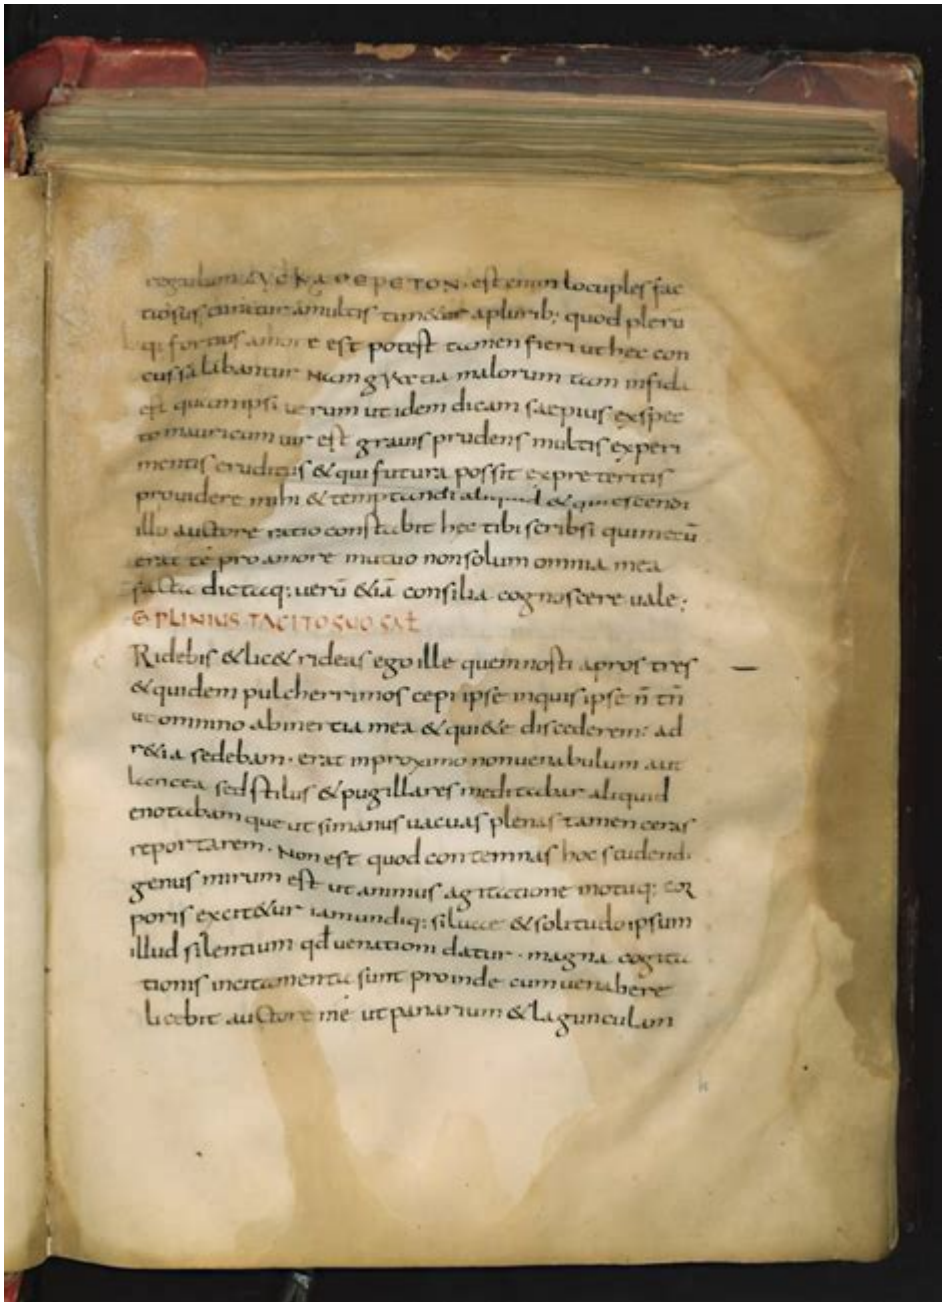 regulum ΔΥCΚΑΘΕΡΕΤΟΝ · est enim locuples fac
tiosus curatur amultis tim&ur apluribꝫ quod plerū
qꝫ fortius amore est potest tamen fieri ut hec con
cussa labantur Nam gratia malorum tam infida
est quam ipsi uerum ut idem dicam saepius exspec
to mauricum uir est grauis prudens multis experi
mentis eruditus & qui futura possit expreteritis
prouidere mihi & temptandi aliquid & quiescendi
illo auctore ratio constabit hec tibi scribsi quia
erat te pro amore mutuo nonsolum omnia mea
facta dictaqꝫ uerū &iā consilia cognoscere uale ;
C PLINIUS TACITO SUO SAł
Ridebis & lic& rideas ego ille quem nosti apros tres
& quidem pulcherrimos cepi ipse inquis ipse n̄ tn̄
ut omnino abinertia mea & qui&e discederem : ad
r&ia sedebam · erat inproximo nonuenabulum aut
lancea sed stilus & pugillares meditabar aliquid
enotabam que ut simanus uacuas plenas tamen ceras
reportarem · Non est quod contemnas hoc studendi
genus mirum est ut animus agitatione motuqꝫ cor
poris excit&ur iam undiqꝫ siluae & solitudo ipsum
illud silentium qđ uenationi datur · magna cogita
tionis incitamenta sunt proinde cum uenabere
licebit auctore me ut panarium & lagunculam